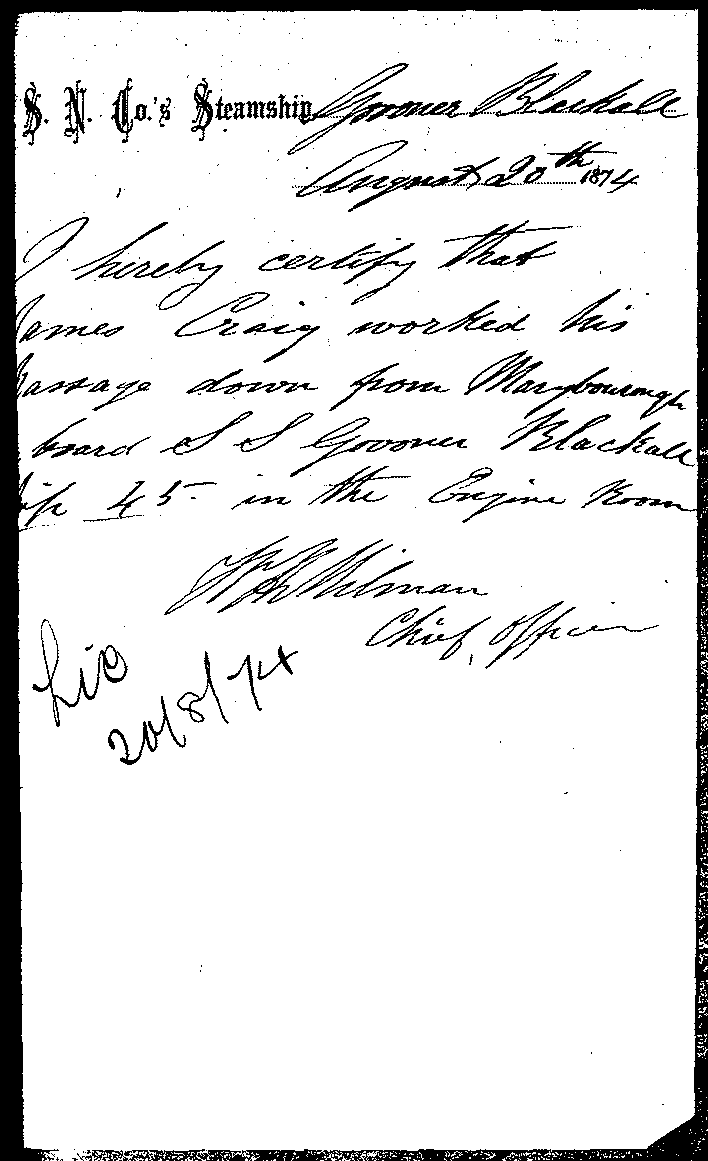 S. N. Co.'s Steamship Govoner Blackall
August 20th 1874
I hereby certify that
James Craig worked his
passage down from Marybourough
board S S Govoner Blackall
45 in the Engine Room
Wilman
Chief Officer
20/8/74